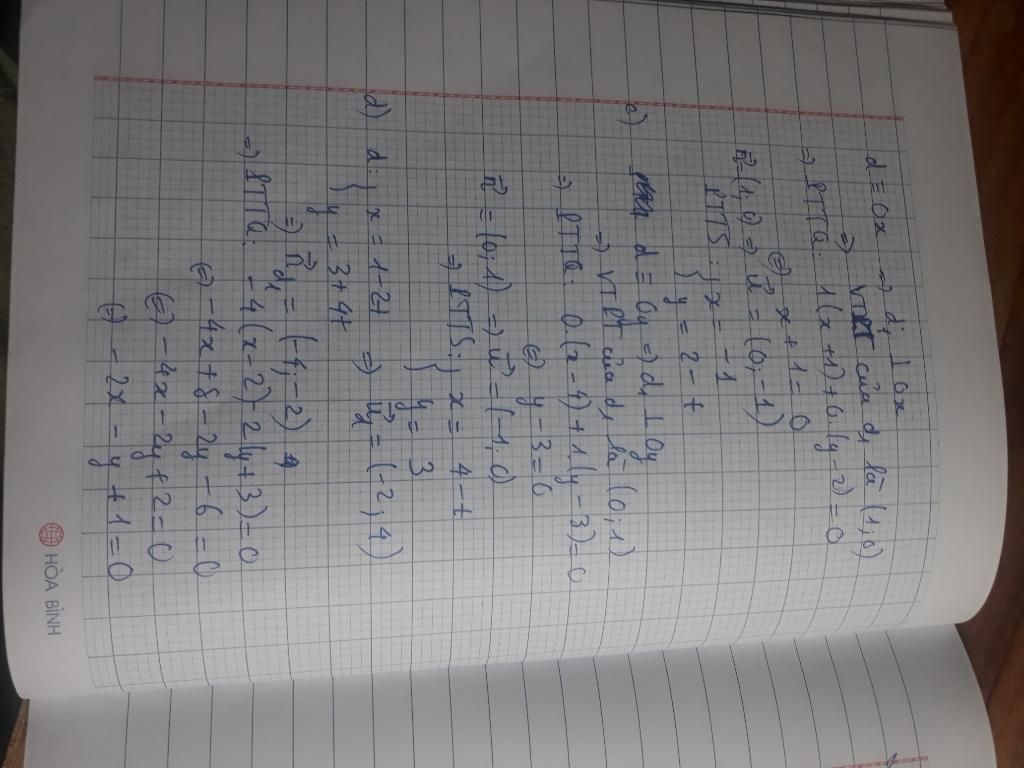 d ≡ Ox ⇒ d₁ ⊥ Ox
⇒ VTPT của d₁ là (1,0)
⇒ PTTQ: 1(x+1)+0.(y-2)=0
⇔ x+1=0
n⃗=(1,0) ⇒ u⃗ = (0;-1)
PTTS: { x = -1
{ y = 2 - t
c) d ≡ Oy ⇒ d₁ ⊥ Oy
⇒ VTPT của d₁ là (0;1)
⇒ PTTQ: 0.(x-4)+1.(y-3)=0
⇔ y-3=0
n⃗ = (0;1) ⇒ u⃗ = (-1;0)
⇒ PTTS: { x = 4-t
{ y = 3
d) d: { x = 1-2t ⇒ u⃗ = (-2;4)
{ y = 3+4t
⇒ n⃗d₁ = (-4;-2)
⇒ PTTQ: -4(x-2)-2(y+3)=0
⇔ -4x+8-2y-6=0
⇔ -4x-2y+2=0
⇔ -2x-y+1=0
HÒA BÌNH